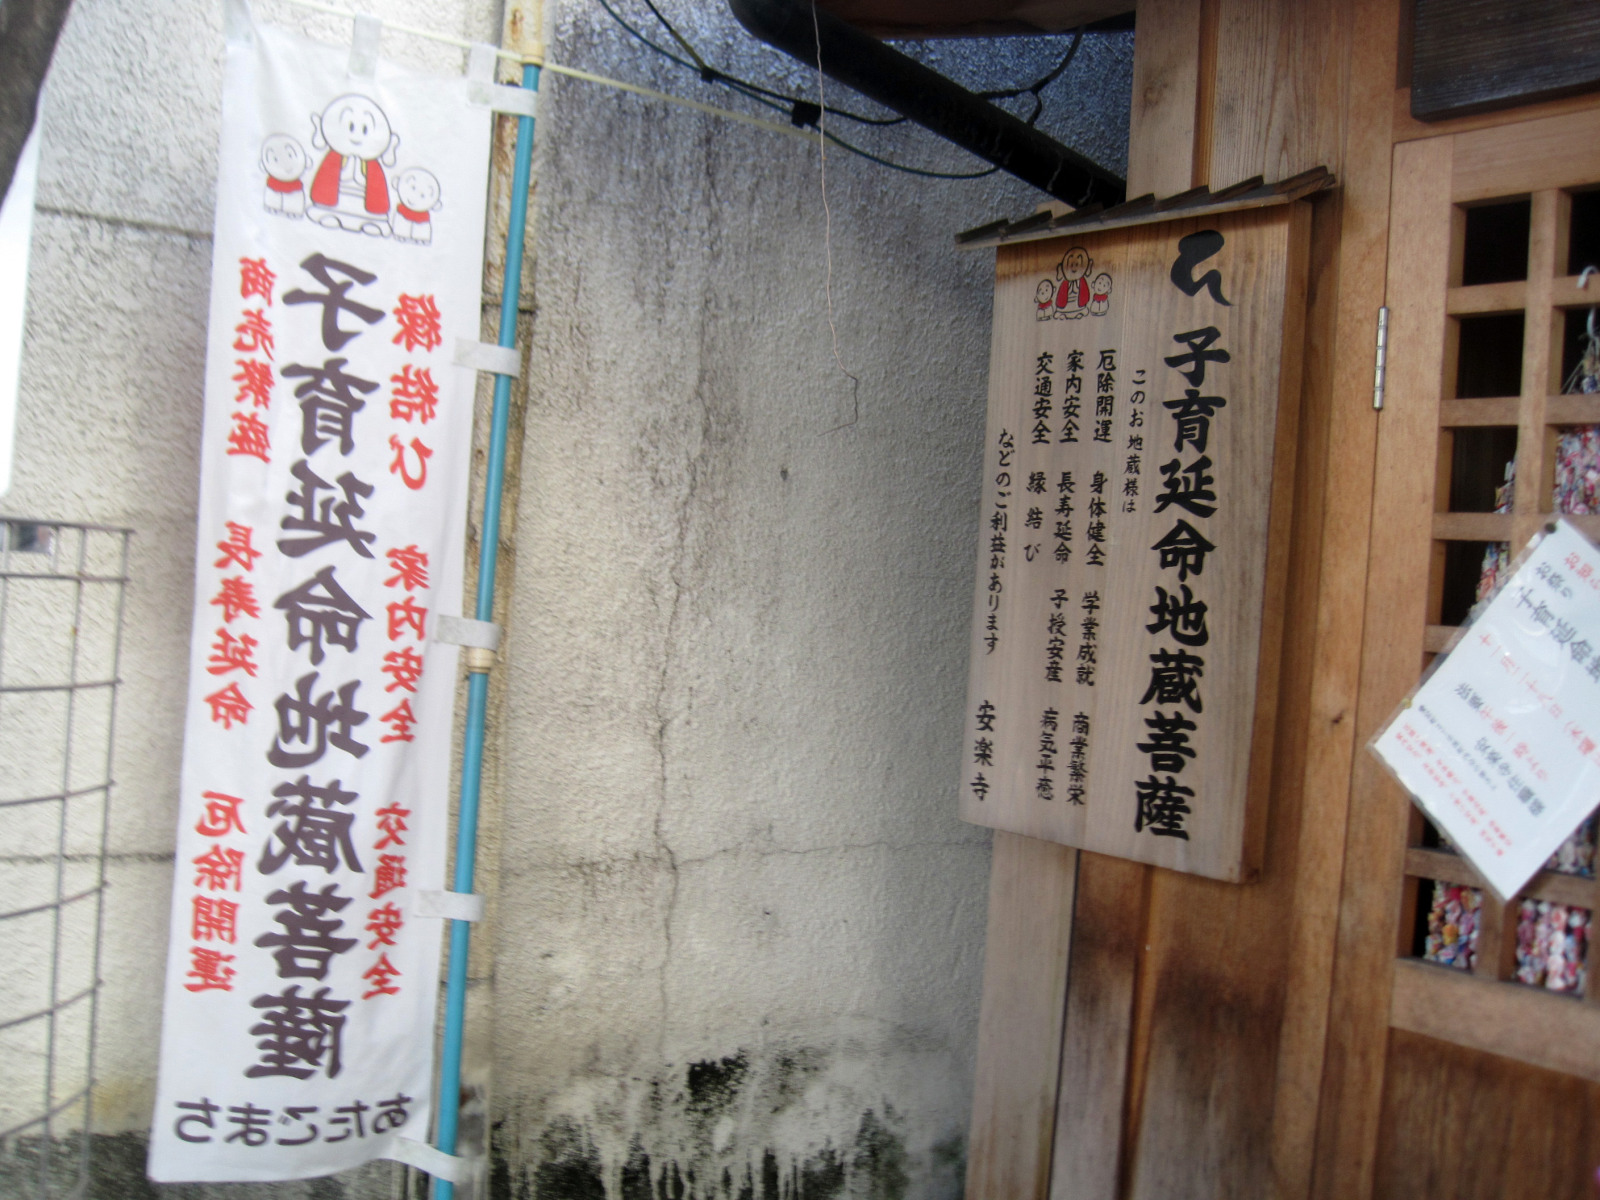 縁結び 家内安全 交通安全
子育延命地蔵菩薩
商売繁盛 長寿延命 厄除開運
あたごまち
子育延命地蔵菩薩
このお地蔵様は
厄除開運 身体健全 学業成就 商業繁栄
家内安全 長寿延命 子授安産 病気平癒
交通安全 縁結び
などのご利益があります 安楽寺
お祭り
子育延命地